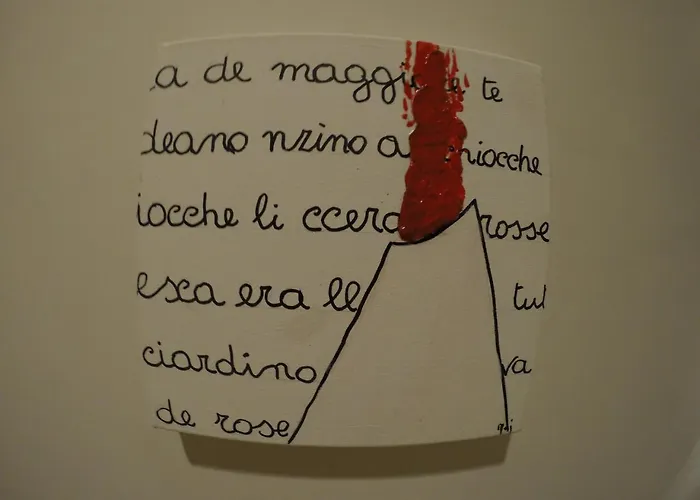 a de maggi te
deano nzino a hiocche
iocche li ccera rosse
esca era ll tul
ciardino va
de rose